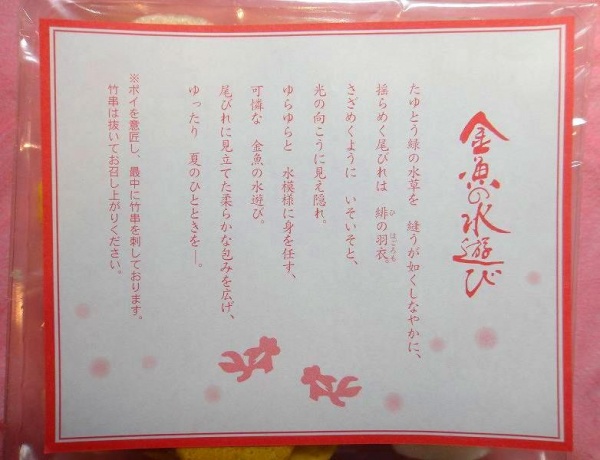 金魚の水遊び
たゆとう緑の水草を 縫うが如くしなやかに、
揺らめく尾びれは 緋の羽衣。
ひ はごろも
さざめくように いそいそと、
光の向こうに見え隠れ。
ゆらゆらと 水模様に身を任す、
可憐な 金魚の水遊び。
尾びれに見立てた柔らかな包みを広げ、
ゆったり 夏のひとときを―。
※ポイを意匠し、最中に竹串を刺しております。
竹串は抜いてお召し上がりください。